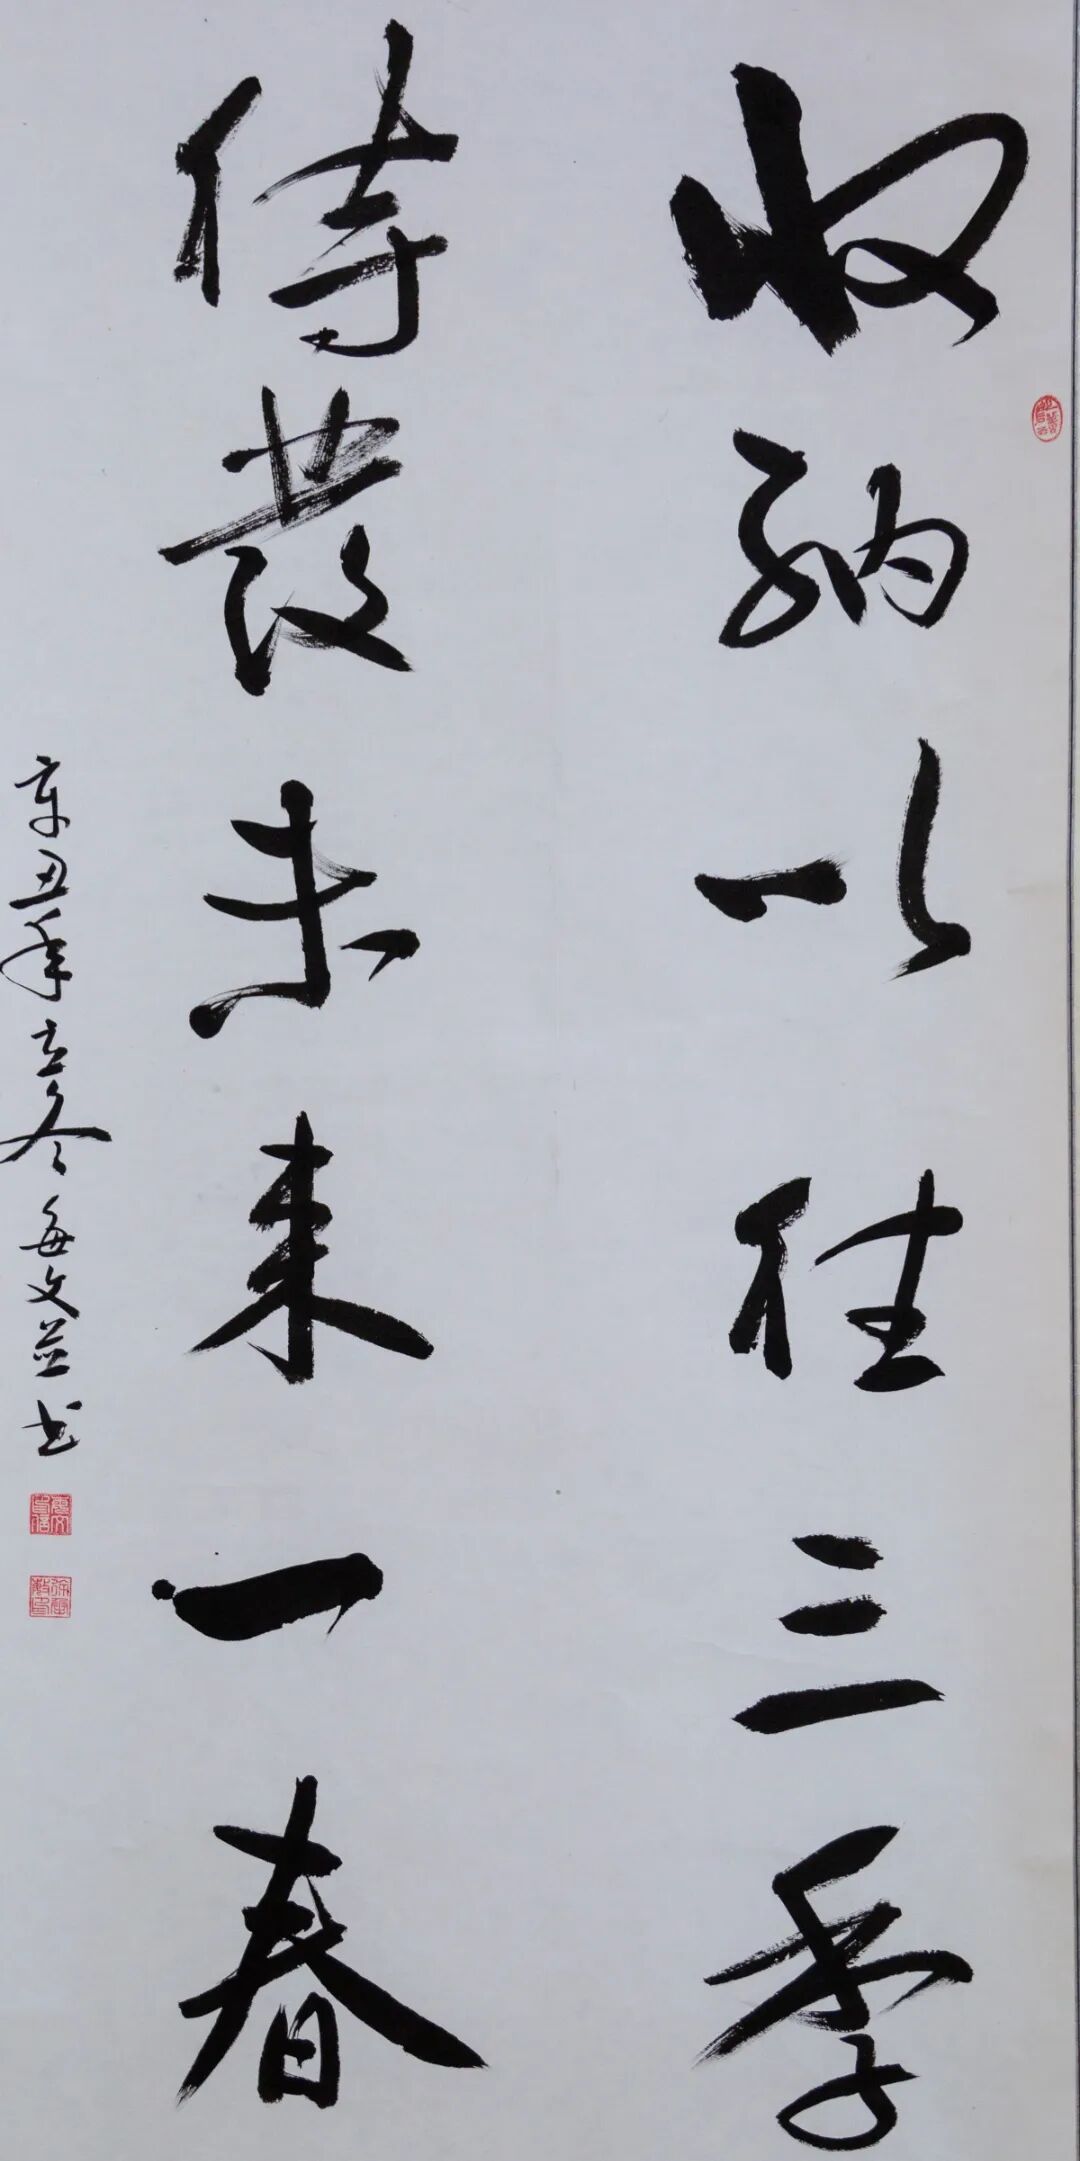 收納以往三季
待發未來一春
辛丑年立冬每文并书